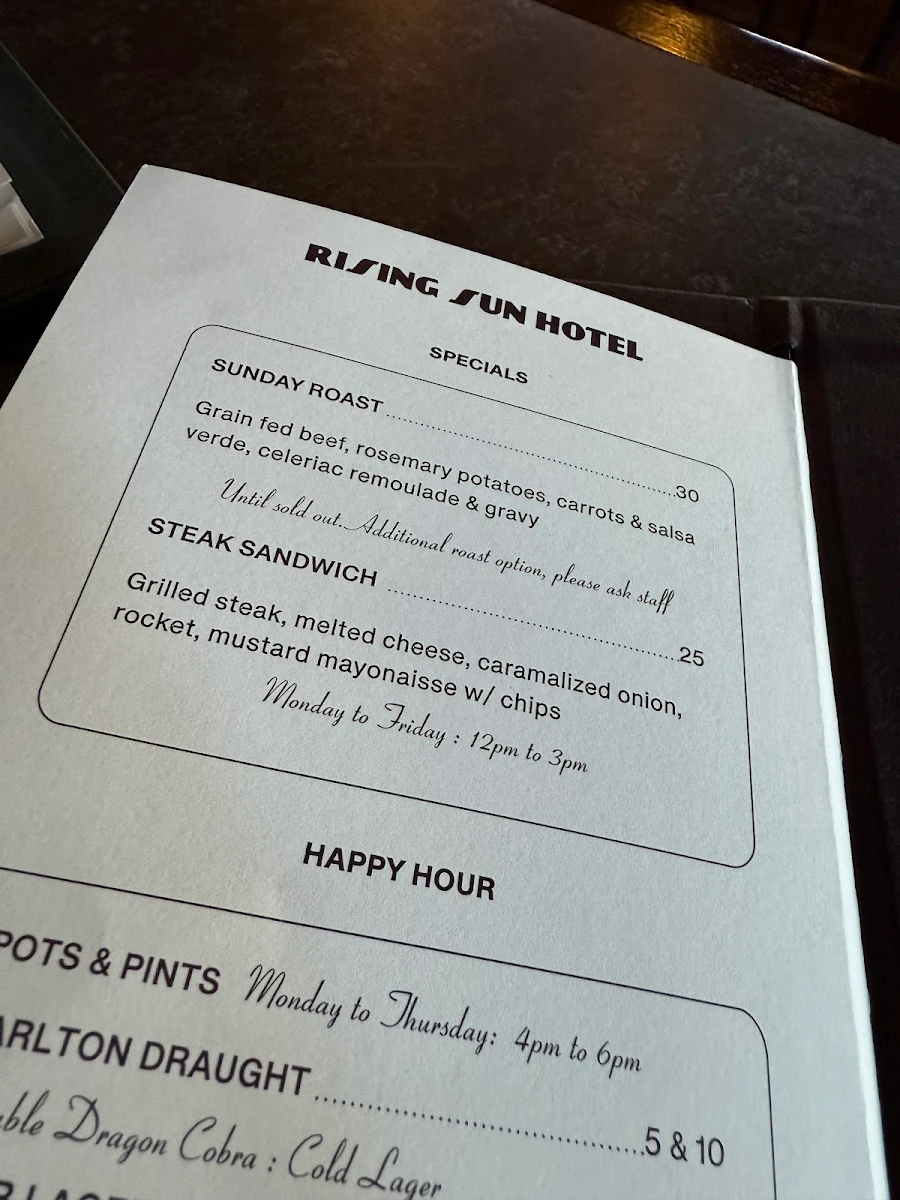 RISING SUN HOTEL
SPECIALS
SUNDAY ROAST ........ 30
Grain fed beef, rosemary potatoes, carrots & salsa
verde, celeriac remoulade & gravy
Until sold out. Additional roast option, please ask staff
STEAK SANDWICH ........ 25
Grilled steak, melted cheese, caramalized onion,
rocket, mustard mayonaisse w/ chips
Monday to Friday : 12pm to 3pm
HAPPY HOUR
POTS & PINTS Monday to Thursday: 4pm to 6pm
DRAUGHT ........ 5 & 10
Dragon Cobra : Cold Lager